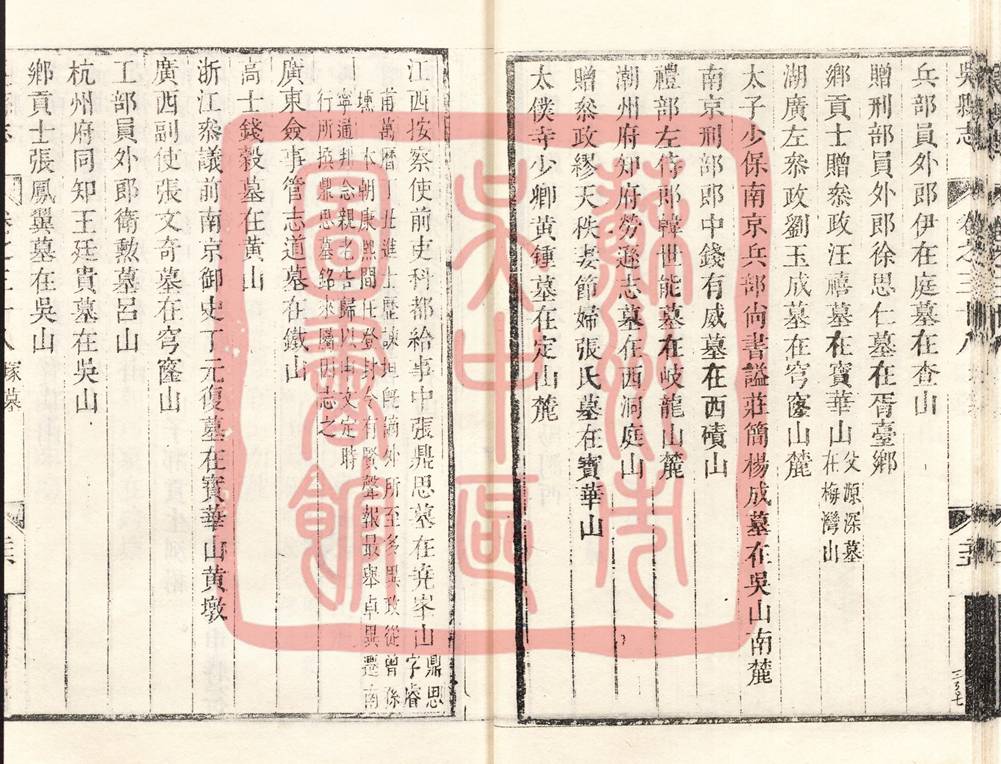 吳縣志
兵部員外郎伊在庭墓在查山
贈刑部員外郎徐思仁墓在胥臺鄉
鄉貢士贈叅政汪禧墓在寶華山父源深墓在梅灣山
湖廣左叅政劉玉成墓在穹窿山麓
太子少保南京兵部尚書謚莊簡楊成墓在吳山南麓
南京刑部郎中錢有威墓在西磧山
禮部左侍郎韓世能墓在岐龍山麓
潮州府知府勞遜志墓在西洞庭山
贈叅政繆天秩妻節婦張氏墓在寶華山
太僕寺少卿黃鍾墓在定山麓
江西按察使前吏科都給事中張鼎思墓在尭峯山鼎思字睿
甫萬曆丁丑進士歷諫垣旣謫外所至多異政從曾孫
壎本朝康熙間任登封令有賢聲報最舉卓異遷南
寧通判念親老告歸以申文定時
行所撰鼎思墓銘來屬因志之
廣東僉事管志道墓在鐵山
高士錢穀墓在黃山
浙江叅議前南京御史丁元復墓在寶華山黃墩
廣西副使張文奇墓在穹窿山
工部員外郎衛勲墓呂山
杭州府同知王廷貴墓在吳山
鄉貢士張鳳翼墓在吳山
卷之三十八 塚墓
蘇州市
吳中區
圖書館